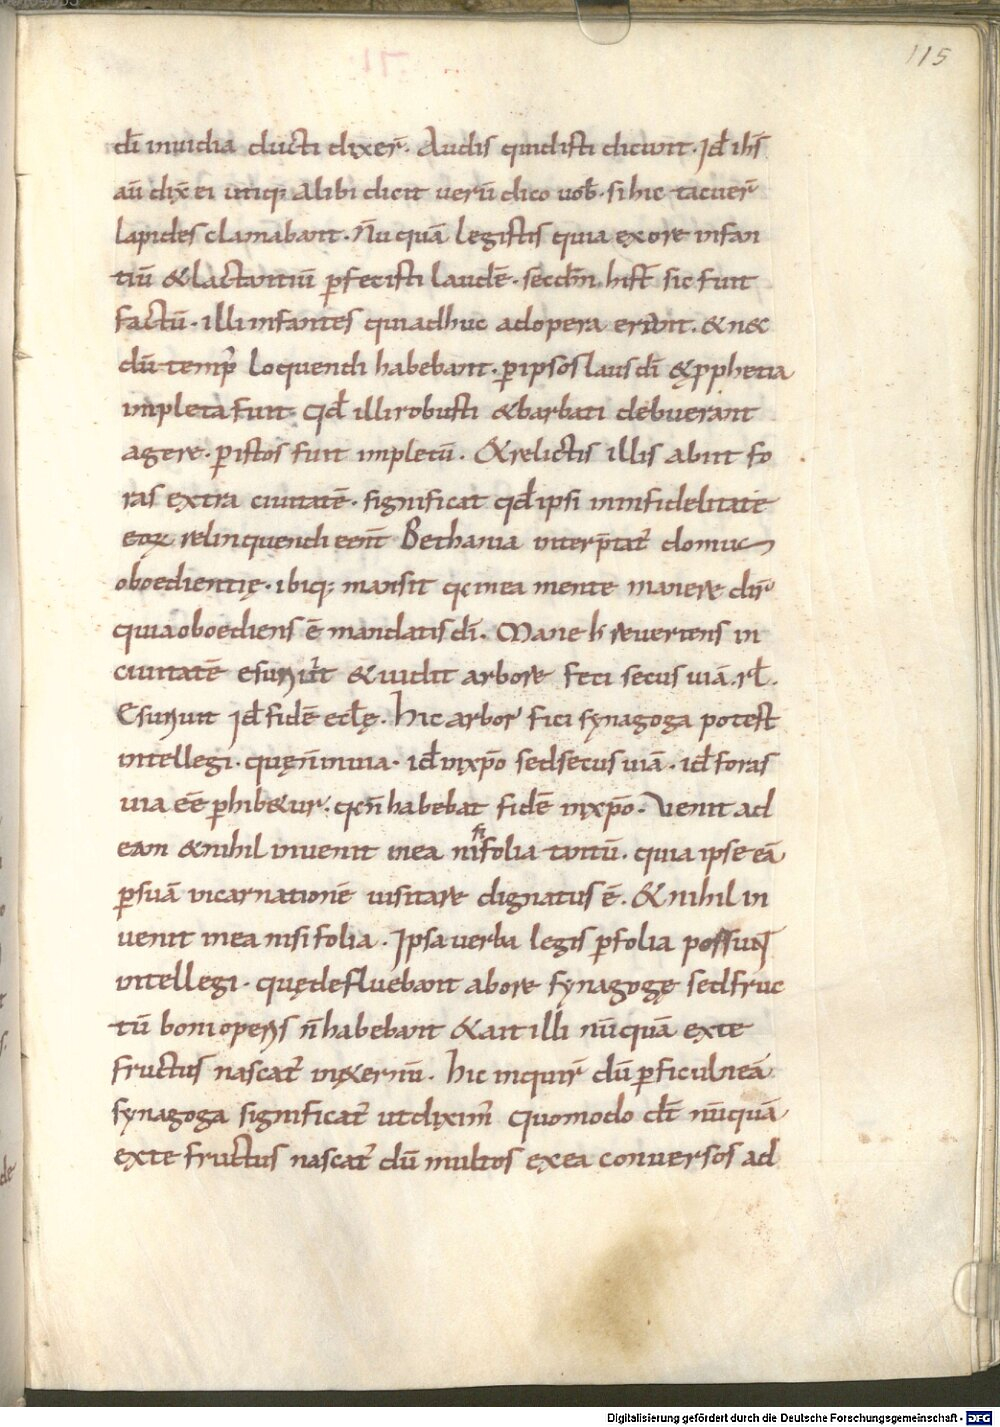 115
dī inuidia ducti dixer̄. Audis quidisti dicunt. Id ihs
aū dix̄ ei utiq; Alibi dicit uerū dico uob. si hic tacuer̄
lapides clamabant. Nūquā legistis quia exore infan
tiū & lactantiū ꝑfecisti laudē. secdm hist sic fuit
factū. illi infantes qui adhuc ad opera erant. & n&
dū temp̄r loquendi habebant. ꝑ ipsos laus dī & ꝓphetia
impleta fuit qd illi robusti & barbati debuerant
agere. ꝑ istos fuit impletū. & relictis illis abiit fo
ras extra ciuitatē. significat qd ipsi in infidelitate
eoꝝ relinquendi eēnt Bethania interp̄tat̄ domus
oboedientię. ibiq; mansit qꝛ in ea mente manere dr̄
quia oboediens ē mandatis dī. Mane h̄ reuertens in
ciuitatē esuriit & uidit arborē fici secus uiā. rl.
Esuriuit Id fidē ecl̄ę. hic arbor fici synagoga potest
intellegi. quę n̄ in uia. id in xp̄o sed secus uiā. id foras
uia eē ꝑhib&ur. qꝛ n̄ habebat fidē in xp̄o. Venit ad
eam & nihil inuenit in ea nisi folia tantū. quia ipse eā
ꝑ suā incarnationē uisitare dignatus ē. & nihil in
uenit in ea nisi folia. Ipsa uerba legis ꝑ folia possunt
intellegi. quę defluebant ab ore synagogę sed fruc
tū boni operis n̄ habebant & ait illi nūquā ex te
fructus nascat̄ in &ernū. hic inquir̄ dū ꝑ ficulneā
synagoga significat̄ ut diximꝰ quomodo dt̄ nūquā
ex te fructus nascat̄ dū multos ex ea conuersos ad
Digitalisierung gefördert durch die Deutsche Forschungsgemeinschaft - DFG